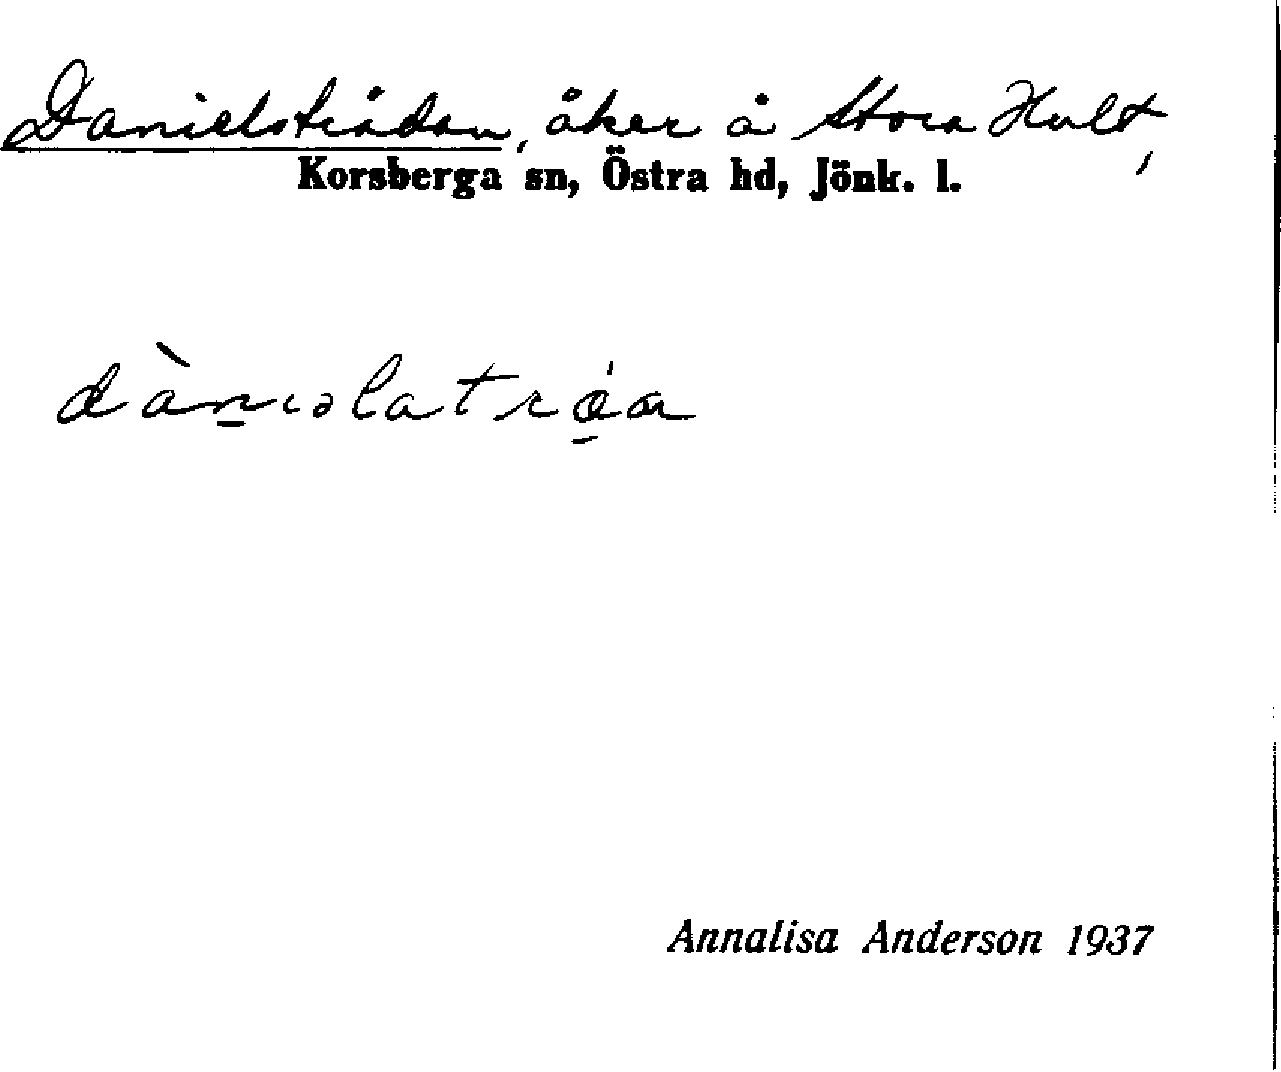 Danielsträdan, åker å Stora Hult,
Korsberga sn, Östra hd, Jönk. l.
Annalisa Anderson 1937